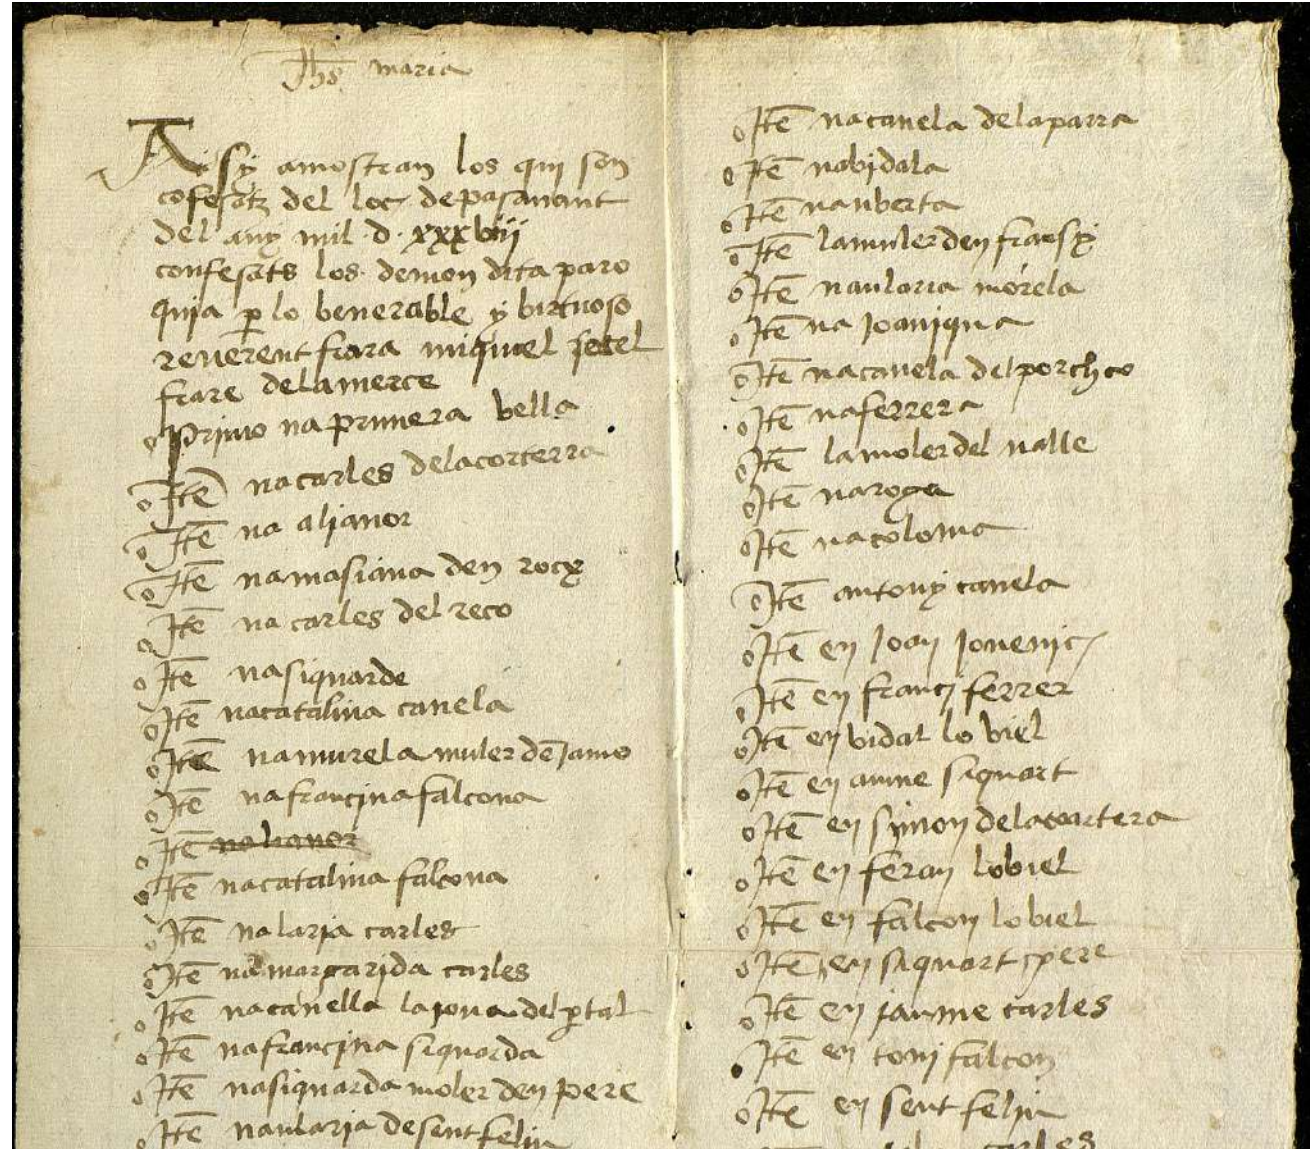 Jhs maria
Asy amostran los qui son
cofesatz del loc de pasanant
del any mil d xxxbiij
confesats los demon dita paro
quja p lo benerable y birtuoso
reuerent frara miquel
frare delamerce
primo na prunera bella
Jtē na carles delacorterra
Jtē na alianor
Jtē na masiana den rocx
Jtē na carles del reco
Jtē na siquarde
Jtē na catalina canela
Jtē na murela muler dē Jamo
Jtē na francina falcona
Jtē na lianor
Jtē na catalina falcona
Jtē na laria carles
Jtē na margarida carles
Jtē na canella la joua del ptal
Jtē na francjna siquarda
Jtē na siquarda moler den pere
Jtē na ularia de sent feliu
Jtē na canela delaparra
Jtē na bidala
Jtē na uberta
Jtē la muler den fransx
Jtē na ularia morela
Jtē na Joaniqua
Jtē na canela del porchco
Jtē na ferrera
Jtē la moler del valle
Jtē na roga
Jtē na coloma
Jtē antony canela
Jtē en Joan Jouenic
Jtē en francj ferrer
Jtē en bidal lo biel
Jtē en aume siquart
Jtē en symon delacortera
Jtē en feran lo biel
Jtē en falcon lo biel
Jtē en siquart pere
Jtē en jaume carles
Jtē en tonj falcon
Jtē en sent feliu
carles